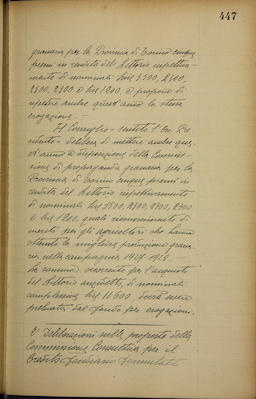 447
granaria per la Provincia di Torino cinque
premi in rendita del Littorio rispettiva-
mente di nominali Lire 3500, 2500,
2500, 2300 e Lire 1200 e propone di
ripetere anche quest'anno la stessa
erogazione. -
Il Consiglio - sentito l'On. Pre
sidente - delibera di mettere anche que
st'anno a disposizione della Commis-
sione di propaganda granaria per la
Provincia di Torino cinque premi in
rendita del Littorio rispettivamente
di nominali Lire 3500, 2500, 2300
e Lire 1200, quali riconoscimento di
merito per gli agricoltori che hanno
ottenuto la migliore produzione grana
ria nella campagna 1927-1928. -
La somma occorrente per l'acquisto
del Littorio suddetto, di nominali
complessive Lire 11.600 dovrà essere
prelevata dal fondo per erogazioni.
2° Deliberazioni sulle proposte della
Commissione Consultiva per il
Credito fondiario formulate